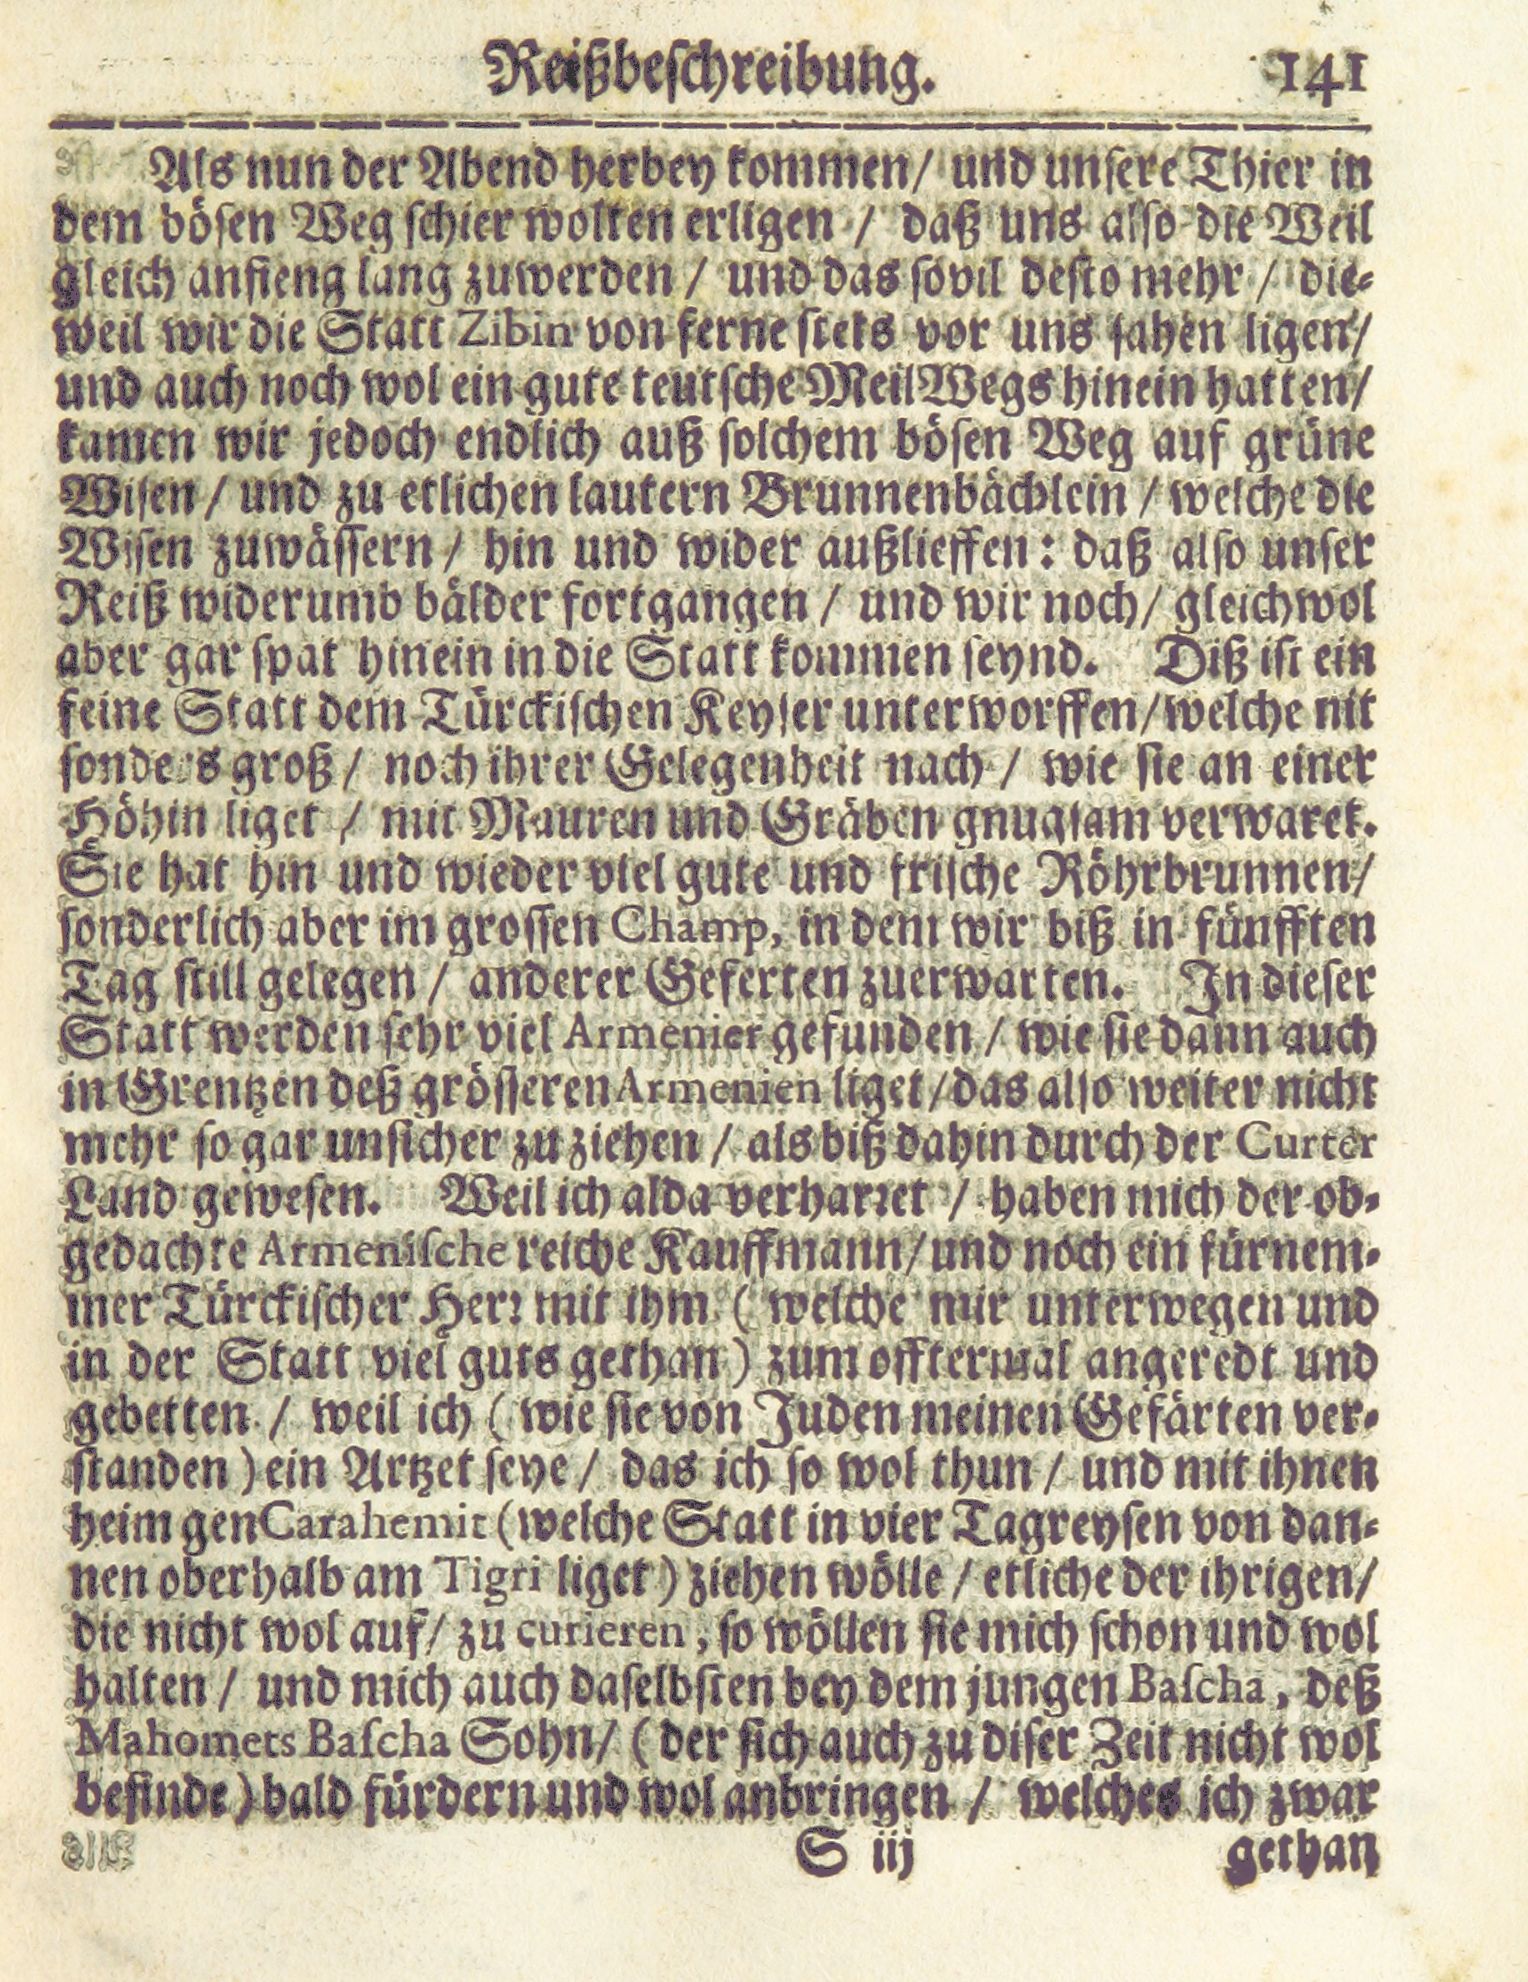 Reißbeſchreibung. 141
Als nun der Abend herbey kommen/ und unſere Thier in
dem böſen Weg ſchier wolten erligen / daß uns alſo die Weil
gleich anfieng lang zuwerden / und das ſovil deſto mehr / die-
weil wir die Statt Zibin von ferne ſtets vor uns ſahen ligen/
und auch noch wol ein gute teutſche Meil Wegs hinein hatten/
kamen wir jedoch endlich auß ſolchem böſen Weg auf grüne
Wiſen / und zu etlichen lautern Brunnenbächlein / welche die
Wiſen zuwäſſern / hin und wider außlieffen: daß alſo unſer
Reiß widerumb bälder fortgangen / und wir noch/ gleichwol
aber gar ſpat hinein in die Statt kommen ſeynd. Diß iſt ein
feine Statt dem Türckiſchen Keyſer unterworffen/ welche nit
ſonders groß / noch ihrer Gelegenheit nach / wie ſie an einer
Höhin liget / mit Mauren und Gräben gnugſam verwaret.
Sie hat hin und wieder viel gute und friſche Röhrbrunnen/
ſonderlich aber im groſſen Champ, in dem wir biß in fünfften
Tag ſtill gelegen / anderer Geferten zuerwarten. In dieſer
Statt werden ſehr viel Armenier gefunden / wie ſie dann auch
in Grentzen deß gröſſeren Armenien liget / das alſo weiter nicht
mehr ſo gar unſicher zu ziehen / als biß dahin durch der Curter
Land geweſen. Weil ich alda verharret / haben mich der ob-
gedachte Armeniſche reiche Kauffmann/ und noch ein fürnem-
mer Türckiſcher Herr mit ihm ( welche mir unterwegen und
in der Statt viel guts gethan ) zum offtermal angeredt und
gebetten / weil ich ( wie ſie von Juden meinen Gefärten ver-
ſtanden ) ein Artzet ſeye / das ich ſo wol thun / und mit ihnen
heim gen Carahemit (welche Statt in vier Tagreyſen von dan-
nen oberhalb am Tigri liget ) ziehen wölle / etliche der ihrigen/
die nicht wol auf/ zu curieren, ſo wöllen ſie mich ſchon und wol
halten / und mich auch daſelbſten bey dem jungen Baſcha, deß
Mahomets Baſcha Sohn/ ( der ſich auch zu diſer Zeit nicht wol
befinde ) bald fürdern und wol anbringen / welches ich zwar
S iij gethan